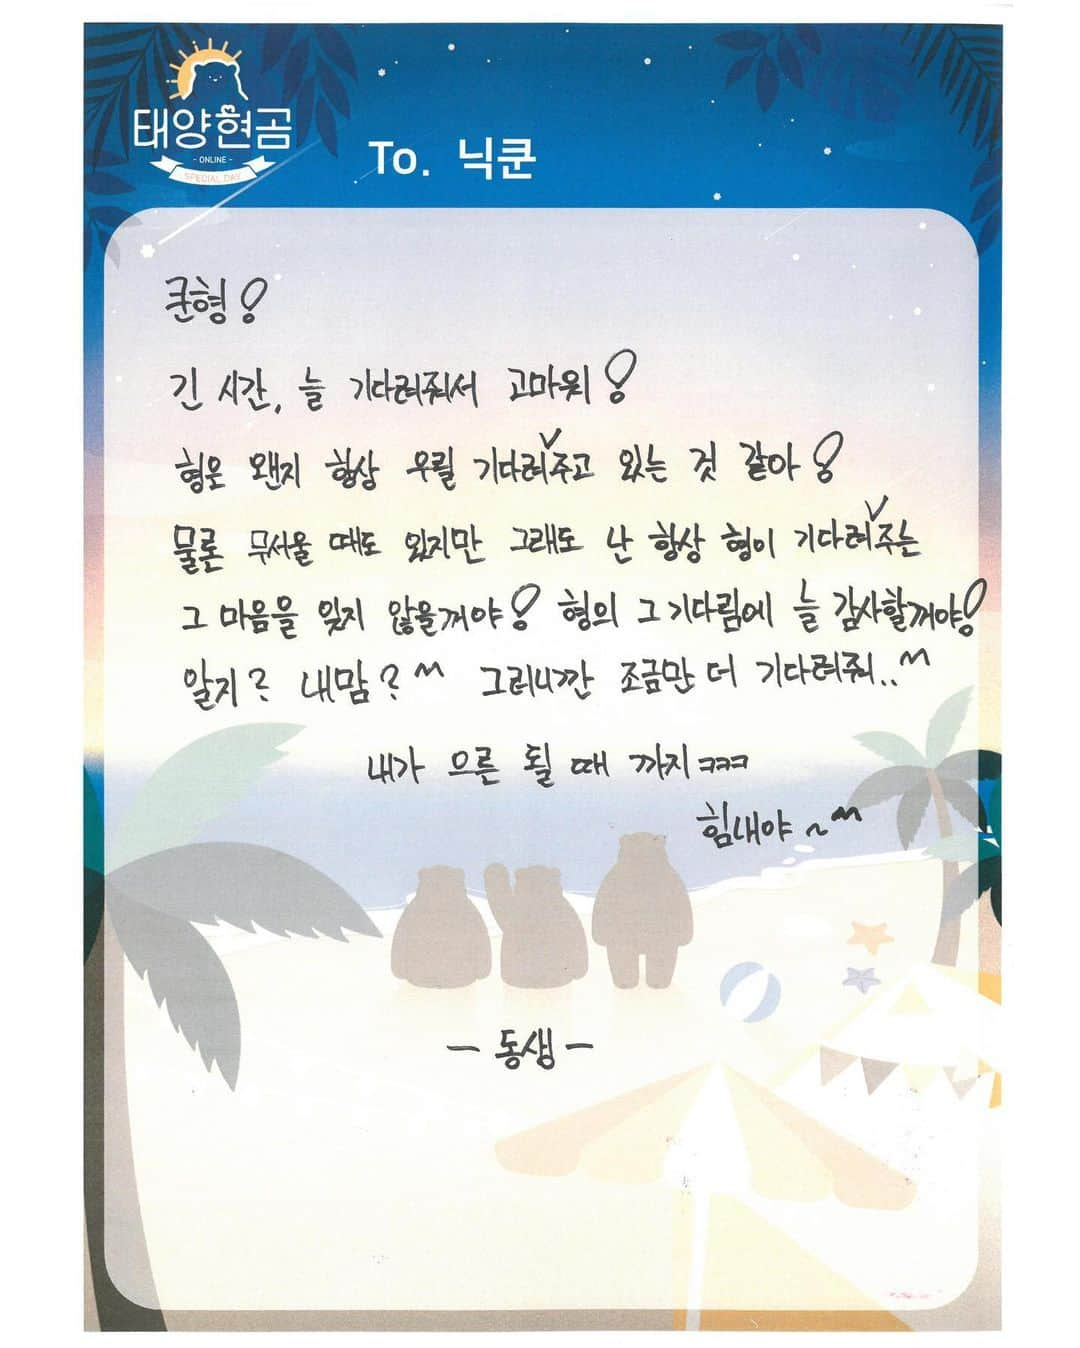 태양현곰
- ONLINE -
SPECIAL DAY
To. 닉쿤
쿤형!
긴 시간, 늘 기다려줘서 고마워!
형은 왠지 항상 우릴 기다려✓주고 있는 것 같아!
물론 무서울 때도 있지만 그래도 난 항상 형이 기다려✓주는
그 마음을 잊지 않을꺼야! 형의 그 기다림에 늘 감사할꺼야!
알지? 내맘? ^^ 그러니깐 조금만 더 기다려줘..^^
내가 으른 될 때 까지ㅋㅋㅋ
힘내야~^^
- 동생 -